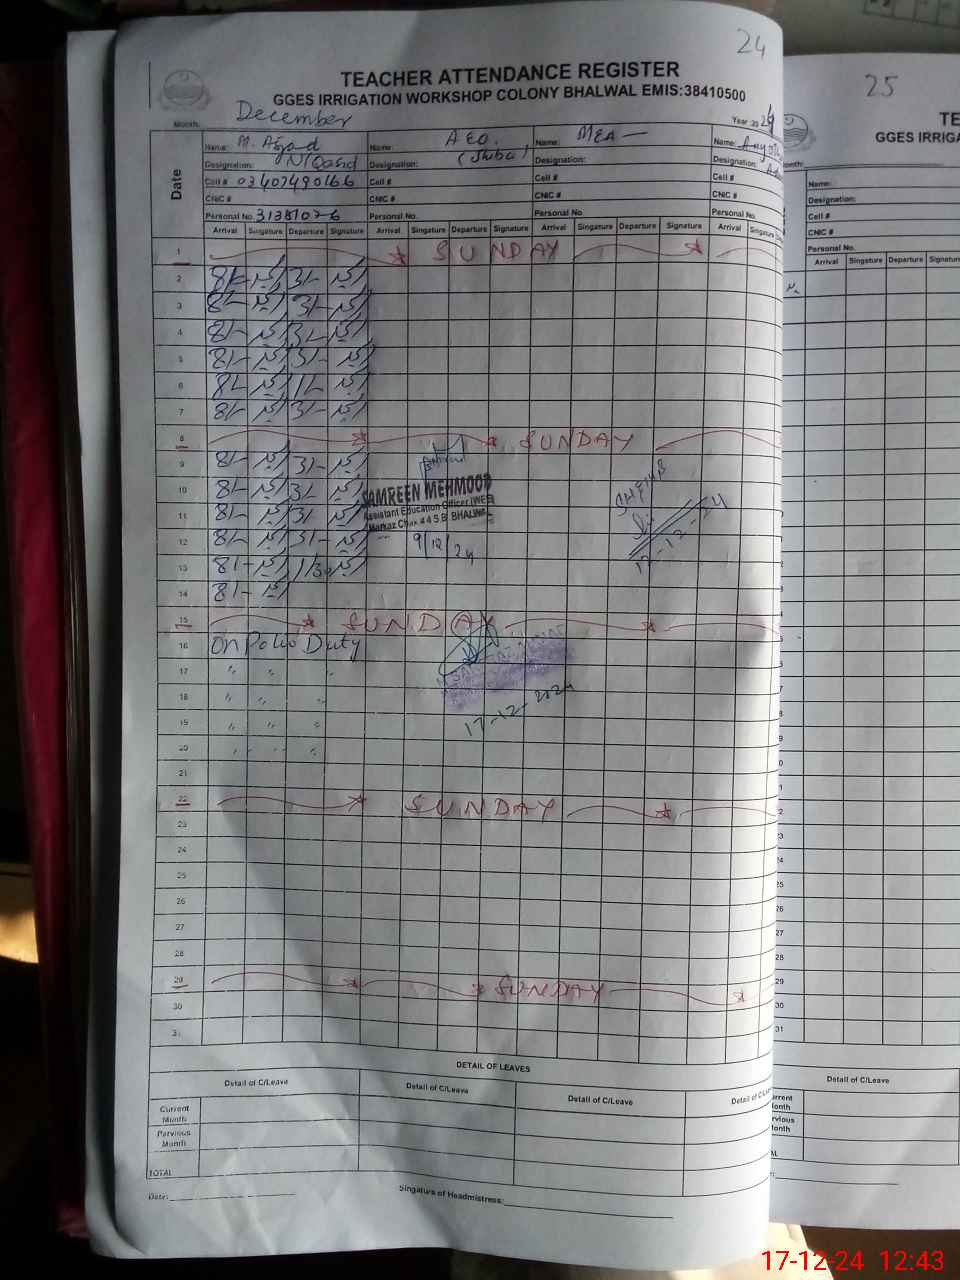 24
TEACHER ATTENDANCE REGISTER
GGES IRRIGATION WORKSHOP COLONY BHALWAL EMIS:38410500
Month: December Year: 2024
Date
Name: M. Afzad Name: AEO. Name: MEA — Name:
Designation: N/Qasid Designation: Designation: Designation:
Cell # 03407490166 Cell # Cell # Cell #
CNIC # CNIC # CNIC # CNIC #
Personal No. 31381076 Personal No. Personal No. Personal No.
Arrival Singature Departure Signature Arrival Singature Departure Signature Arrival Singature Departure Signature Arrival Singature
1 SUNDAY
2 8/- 3/-
3 8/- 3/-
4 8/- 3/-
5 8/- 3/-
6 8/- 1/-
7 8/- 3/-
8 SUNDAY
9 8/- 3/-
10 8/- 3/-
11 8/- 3/-
12 8/- 3/-
13 8/- 1/30
14 8/-
SAMREEN MEHMOOD
Assistant Education Officer (WEE)
Markaz Chak 44 S.B. BHALWAL
9/12/24
17-12-24
15 SUNDAY
16 On Polio Duty
17 " " "
18 " " "
19 " " "
20 " " "
17-12-2024
21
22 SUNDAY
23
24
25
26
27
28
29 SUNDAY
30
31
DETAIL OF LEAVES
Detail of C/Leave Detail of C/Leave Detail of C/Leave Detail of C/Leave
Current Month
Pervious Month
TOTAL
Date:
Singature of Headmistress:
25
TE
GGES IRRIGA
Month:
Name:
Designation:
Cell #
CNIC #
Personal No.
Arrival Singature Departure Signature
Detail of C/Leave
17-12-24 12:43